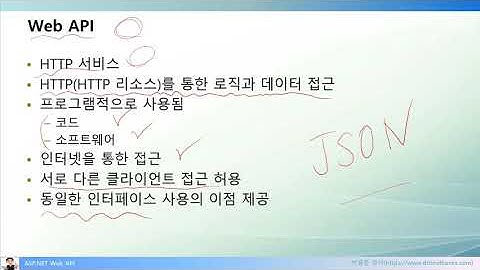 Web API
• HTTP 서비스
• HTTP(HTTP 리소스)를 통한 로직과 데이터 접근
• 프로그램적으로 사용됨
– 코드
– 소프트웨어
• 인터넷을 통한 접근
• 서로 다른 클라이언트 접근 허용
• 동일한 인터페이스 사용의 이점 제공
JSON
ASP.NET Web API